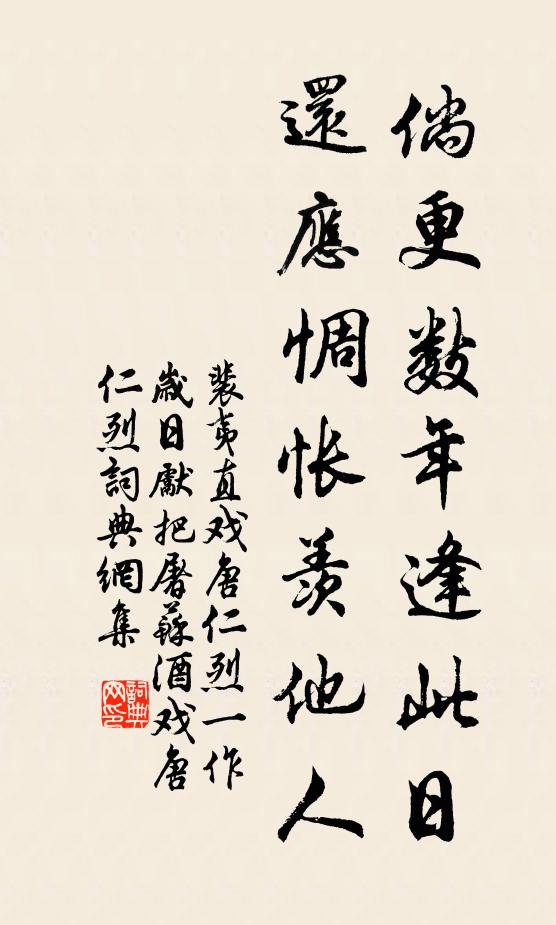 倘更數年逢此日
還應惆悵羨他人
裴夷直戏唐仁烈一作
歲日獻把屠蘇酒戏唐
仁烈詞典網集
詞典网印